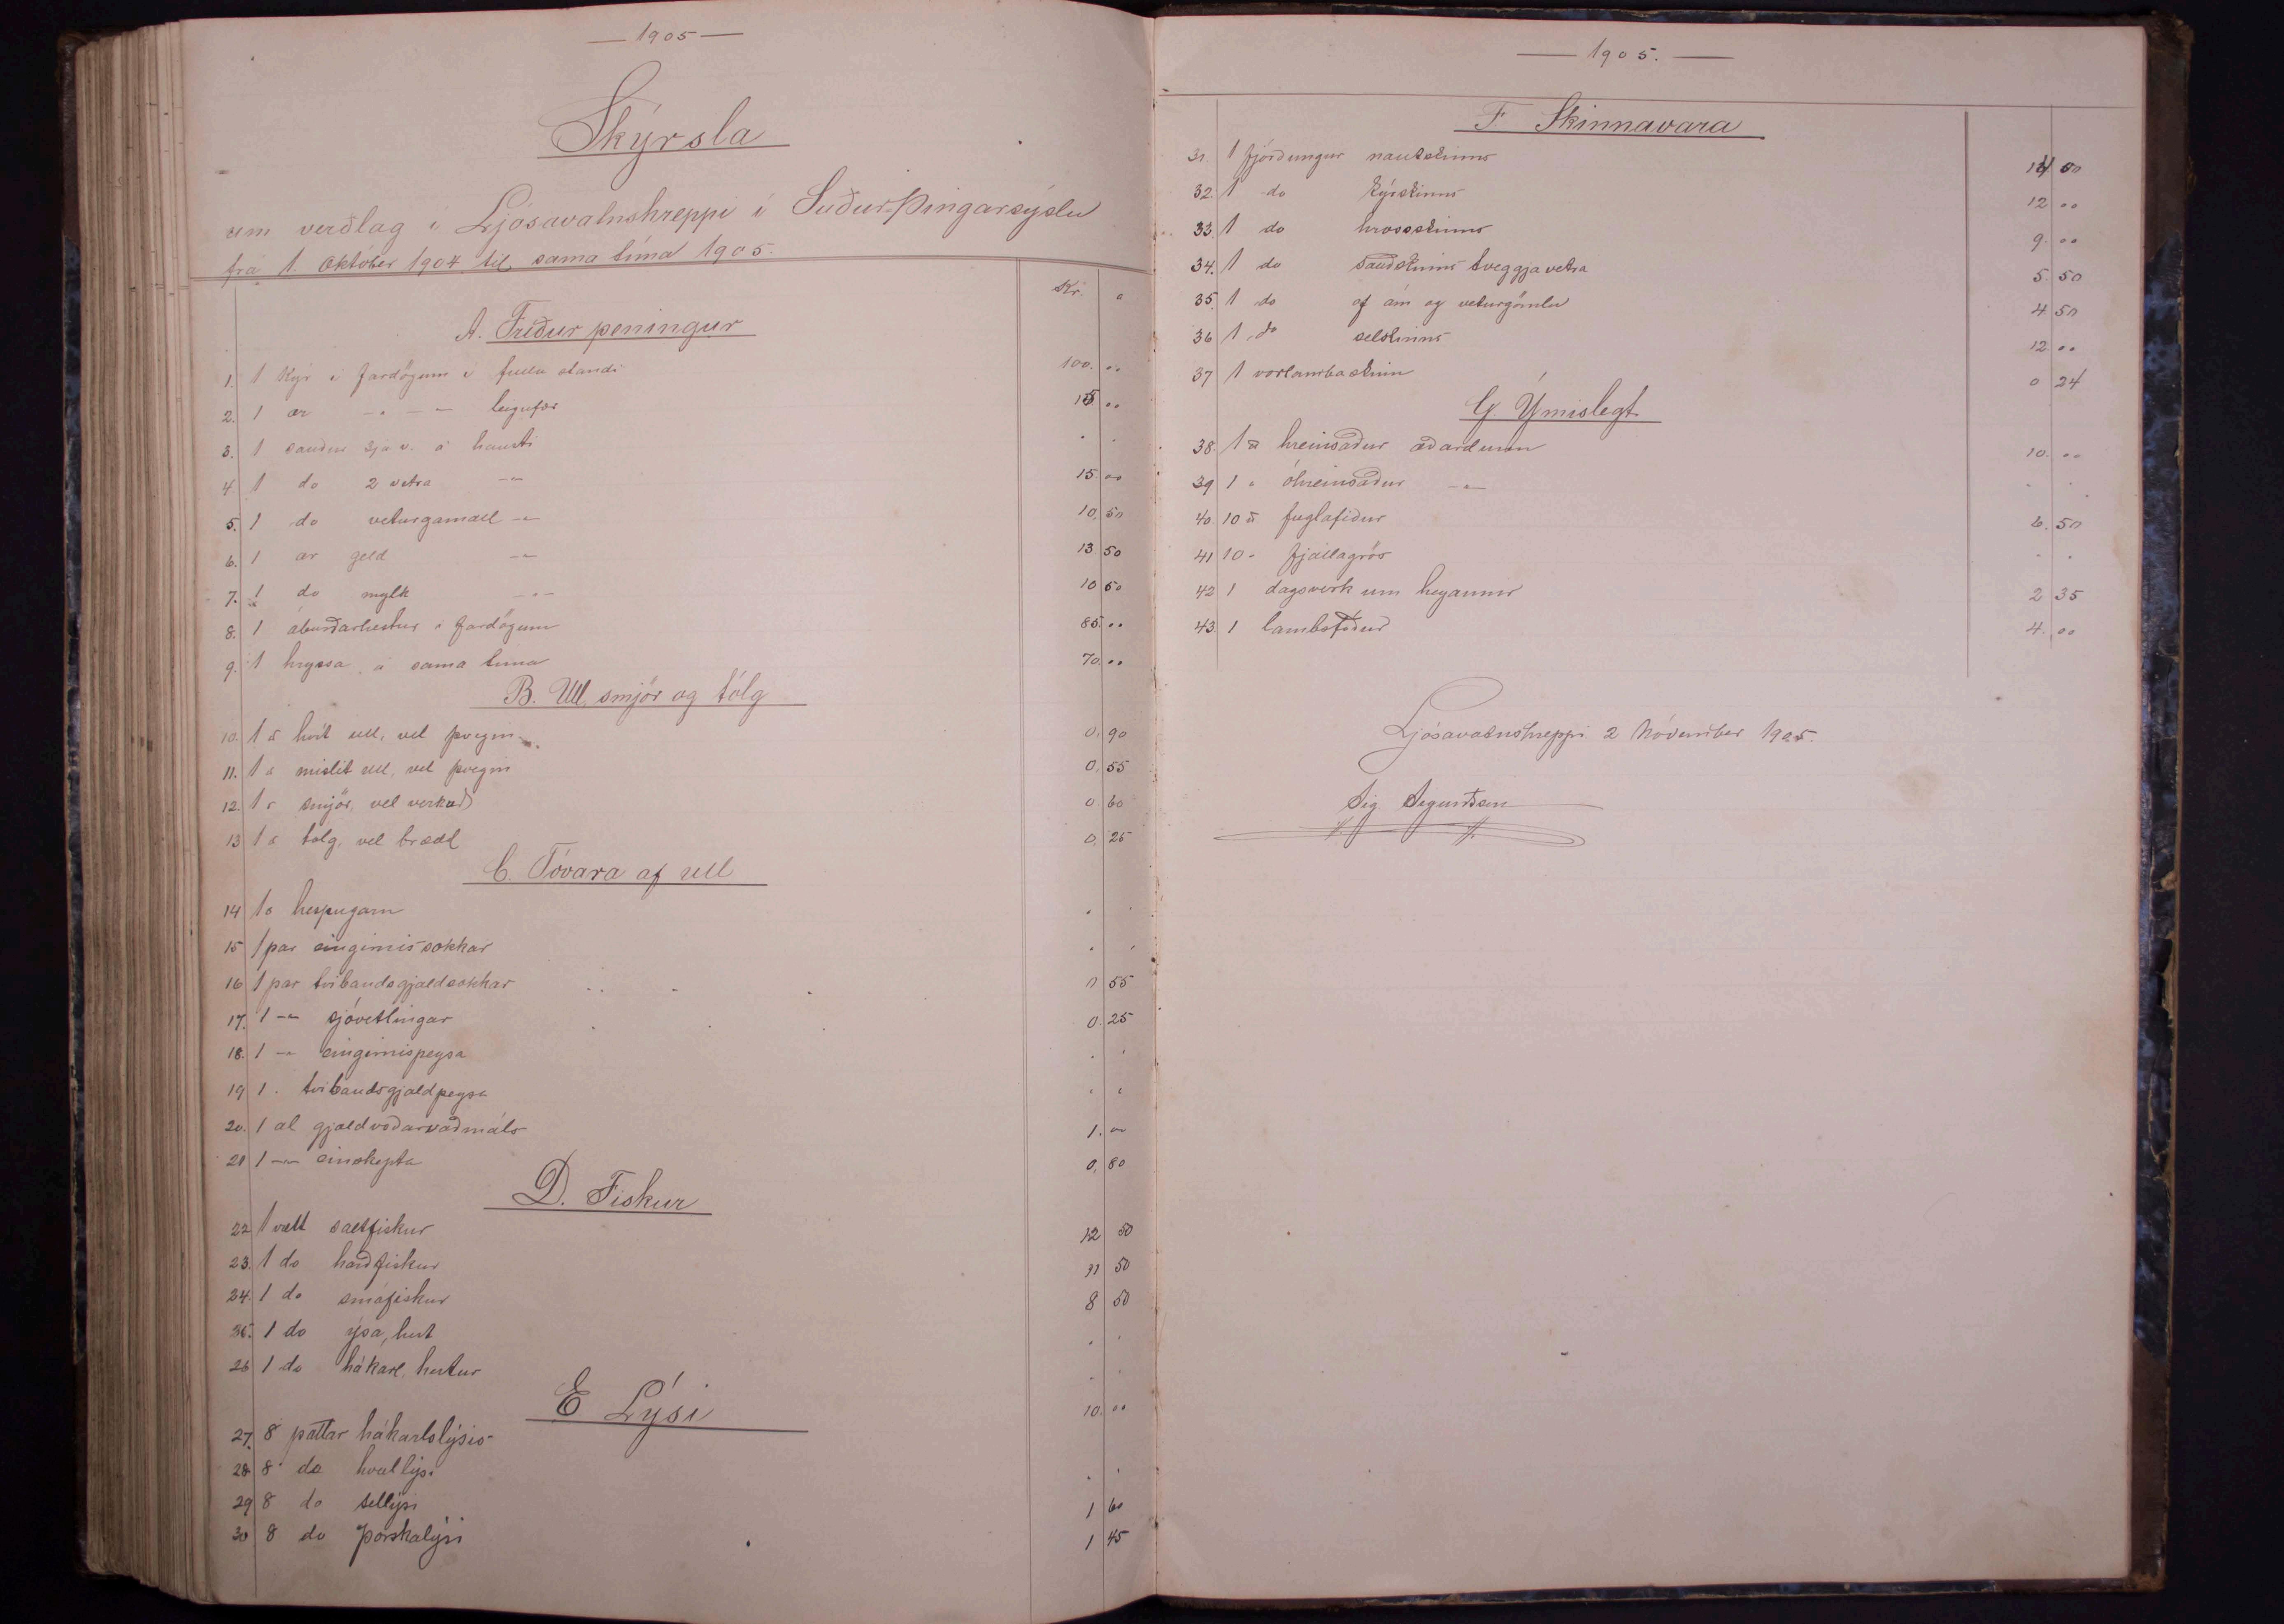 — 1905 —
Skýrsla
um verðlag í Ljósavatnshreppi í Suður-Þingarsýslu
frá 1. Október 1904 til sama tíma 1905.
Kr. a
A. Fríður peningur
1. 1 Kýr í fardögum í fullu standi 100. ..
2. 1 ær -„- - leigufær ..
3. 1 sauður 3ja v. á hausti . .
4. 1 do 2 vetra -„- 15. ..
5. 1 do veturgamall -„- 10, 50
6. 1 ær geld -„- 13. 50
7. 1 do mylk -„- 10 50
8. 1 áburðarhestur í fardögum 85. ..
9. 1 hryssa á sama tíma 70. ..
B. Ull, smjör og tólg
10. 1 ℔ hvít ull, vel þvegin 0, 90
11. 1 „ mislit ull, vel þvegin 0, 55
12. 1 „ smjör, vel verkað 0. 60
13 1 „ tólg, vel brædt 0, 25
C. Tóvara af ull
14 1 „ hespugarn . .
15 1 par eingirnissokkar . .
16 1 par tvíbandsgjaldsokkar 0 55
17. 1 -„- sjóvetlingar 0. 25
18. 1 -„- eingirnispeysa . .
19 1 . tvíbandsgjaldpeysa . .
20. 1 al gjaldvoðarvaðmáls 1. ..
21 1 -„- einskepta 0, 80
D. Fiskur
22 1 vætt saltfiskur 12 50
23. 1 do harðfiskur 11 50
24. 1 do smáfiskur 8 50
25. 1 do ýsa, hert . .
26 1 do hákarl, hertur . .
E Lýsi
27. 8 pottar hákarlslýsis 10. ..
28 8 do hvallýsi . .
29 8 do sellýsi 1 60
30 8 do þorskalýsi 1 45
— 1905. —
F Skinnavara
31. 1 fjórðungur nautskinns 14 00
32. 1 do kýrskinns 12 ..
33. 1 do hrossskinns 9. ..
34. 1 do sauðskinns tveggja vetra 5. 50
35. 1 do af ám og veturgömlu 4. 50
36 1 do selskinns 12. ..
37 1 vorlambaskinn 0 24
G Ýmislegt
38. 1 ℔ hreinsaður æðardúnn 10. ..
39 1 „ óhreinsaður -„- . .
40. 10 ℔ fuglafiður 6. 50
41 10 „ fjallagrös . .
42 1 dagsverk um heyannir 2 35
43. 1 lambsfóður 4. ..
Ljósavatnshreppi 2 Nóvember 1905.
Sig. Sigurðsson